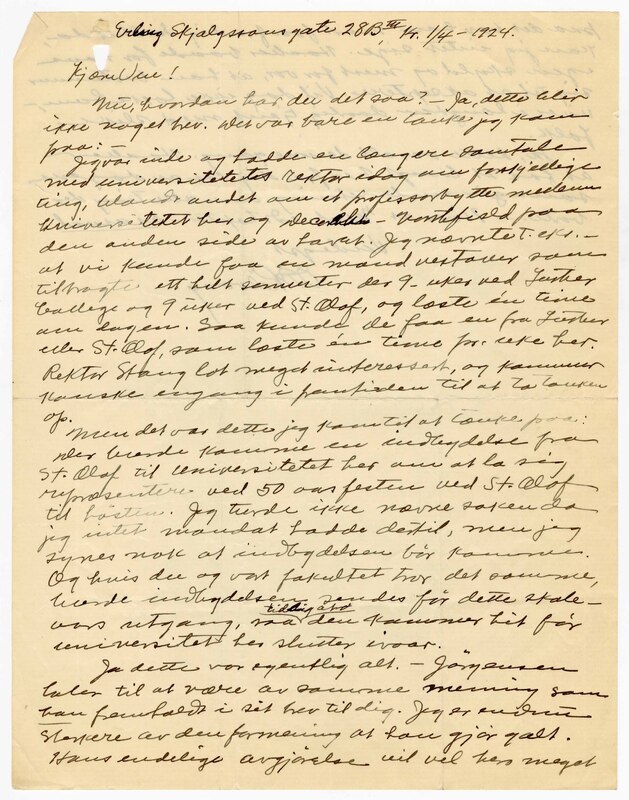 Erling Skjalgssons gate 28B III, Kr. 1/4 – 1924.
Kjære Ven!
Nu, hvordan har du det saa? – Ja, dette blir
ikke noget brev. Det var bare en tanke jeg kom
paa:
Jeg var inde og hadde en længere samtale
med universitetets rektor idag om forskjellige
ting, blandt andet om et professorbytte mellem
Universitetet her og
den anden side av havet. Jeg nævnte t. eks. –
at vi kunde faa en mand vestover som
tilbragte et helt semester der 9 uker ved Luther
College og 9 uker ved St. Olaf, og læste en time
om dagen. Saa kunde de faa en fra Luther
eller St. Olaf, som læste én time pr. uke her.
Rektor Stang lot meget interessert, og kommer
kanske engang i fremtiden til at ta tanken
op.
Men det var dette jeg kom til at tænke paa:
Der burde komme en indbydelse fra
St. Olaf til Universitetet her om at la sig
repræsentere ved 50 aarsfesten ved St. Olaf
til høsten. Jeg turde ikke nævne saken da
jeg intet mandat hadde dertil, men jeg
synes nok at indbydelsen bör komme.
Og hvis du og vort fakultet tror det samme,
burde indbydelsen sendes för dette skole-
aars utgang, saa tidlig at den kommer hit før
universitetet her slutter ivaar.
Ja dette var egentlig alt. – Jörgensen
later til at være av samme mening som
han fremholdt i sit brev til dig. Jeg er endnu
sterkere av den formening at han gjör galt.
Hans endelige avgjörelse vil vel bero meget